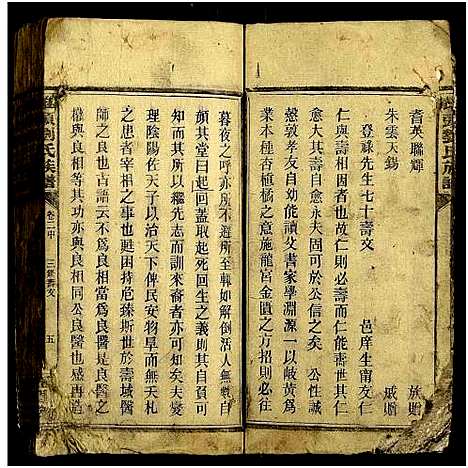 耆英聯輝 族贈
朱雲天錫 戚贈
登祿先生七十壽文 邑庠生南友仁
仁與壽相因者也故仁則必壽而仁能壽世其仁
愈大其壽愈永夫固可於公信之矣 公性誠
慤敦孝友自幼能讀父書家學淵源一以岐黃為
業本種杏植橘之意施龍宮金匱之方招則必赴
暮夜之呼亦所不避所至輒如解倒活人無數
顏其堂曰起回蓋取起死回生之義則其
知而其所以繼先志而訓來裔者亦可知矣夫燮
理陰陽佐天子以寧天下俾民安物阜而無天札
之患者宰相之事也甦困持危臻斯世於壽域醫
師之良也古語云不為良相當為良醫是良醫之
權與良相等其功亦與良相同公良醫也盛再造
劉氏族譜
卷二中
五
劉氏族譜